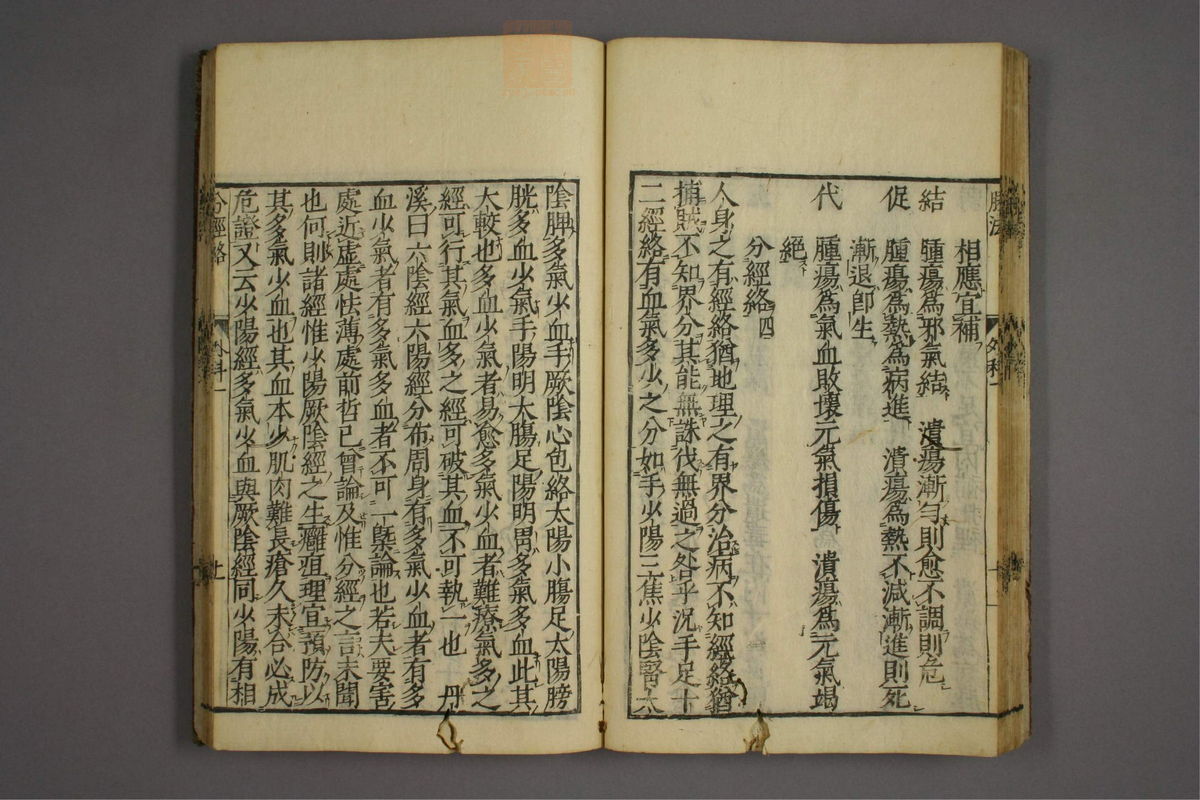 脉法
外科一
十一
相應宜補
結　腫瘍為邪氣結　潰瘍漸勻則愈不調則危
促　腫瘍為熱為病進　潰瘍為熱不減漸進則死
漸退卽生
代　腫瘍為氣血敗壞元氣損傷　潰瘍為元氣竭
絕
分經絡四
人身之有經絡猶地理之有界分治病不知經絡猶
捕賊不知界分其能無誅伐無過之咎乎況手足十
二經絡有血氣多少之分如手少陽三焦少陰腎太
陰脾多氣少血手厥陰心包絡太陽小腸足太陽膀
胱多血少氣手陽明大腸足陽明胃多氣多血此其
大較也多血少氣者易愈多氣少血者難療氣多之
經可行其氣血多之經可破其血不可執一也　丹
溪曰六陰經六陽經分布周身有多氣少血者有多
血少氣者有多氣多血者不可一槩論也若夫要害
處近虛處怯薄處前哲已曾論及惟分經之言未聞
也何則諸經惟少陽厥陰經之生癰疽理宜預防以
其多氣少血也其血本少肌肉難長瘡久未合必成
危證又云少陽經多氣少血與厥陰經同少陽有相
分經絡
外科一